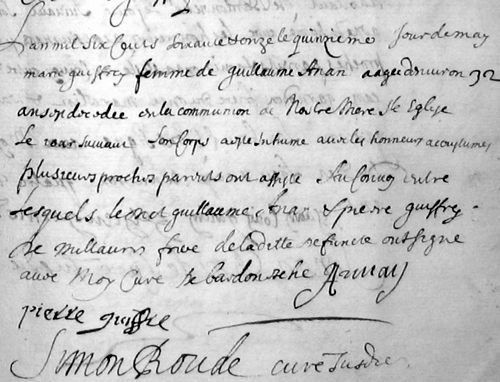 Lan mil Six Cents soixante onze le quinzieme Jour de may
marie guiffrey femme de guillaume Anan aagee denviron 32
ans est decedee en la communion de Nostre Mere Ste Eglise
Le jour suivant Son Corps a este Inhume avec les honneurs accoustumes
plusieurs proches parents ont assiste Au Convoy entre
Lesquels le guillaume Anan & pierre guiffrey
de frere de laditte deffuncte ont signe
avec Moy Curé de
pierre guiffre
Simon Roude curé Susdit